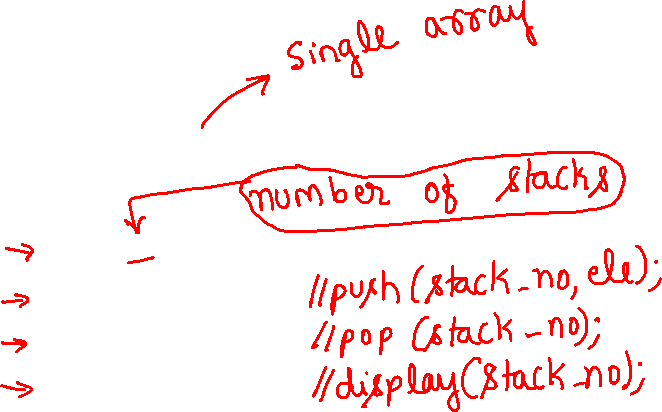 single array
number of stacks
//push(stack_no, ele);
//pop (stack_no);
//display(stack_no);